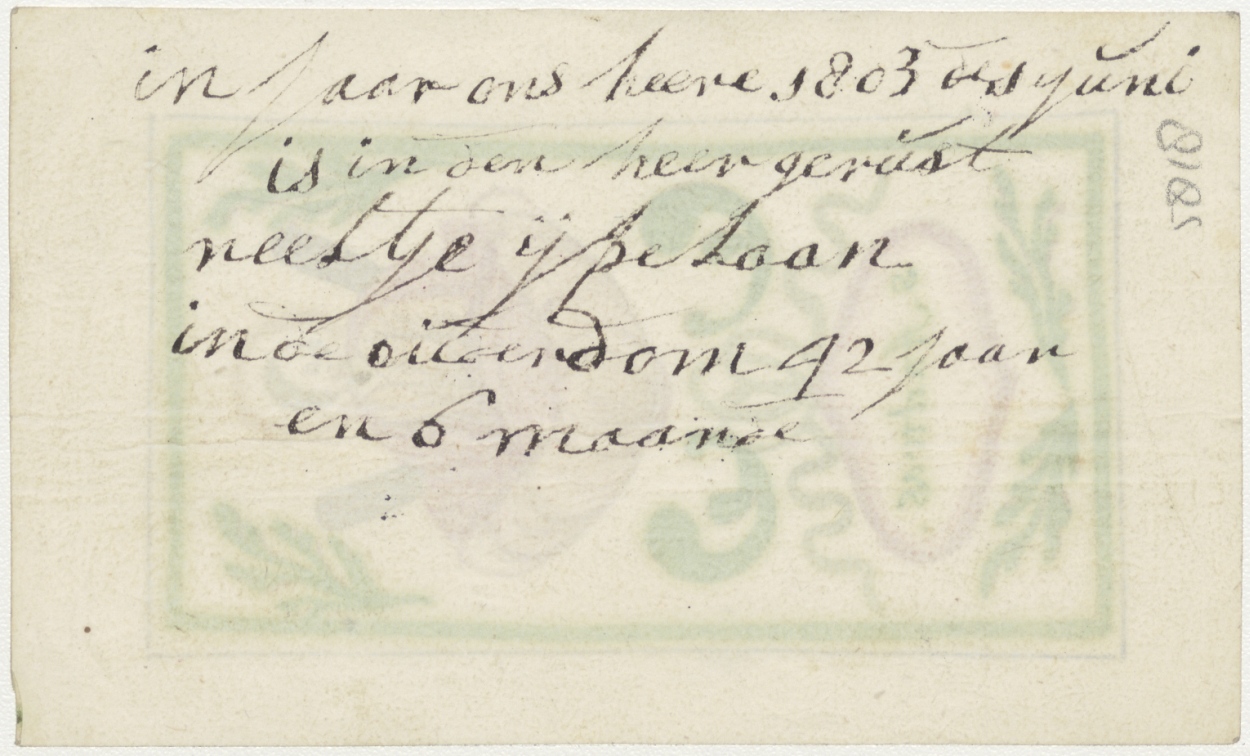 in jaar ons heere 1803 de 1 yuni
is in den heer gerust
neeltje
in de ouderdom 42 jaar
en 6 maande
8185